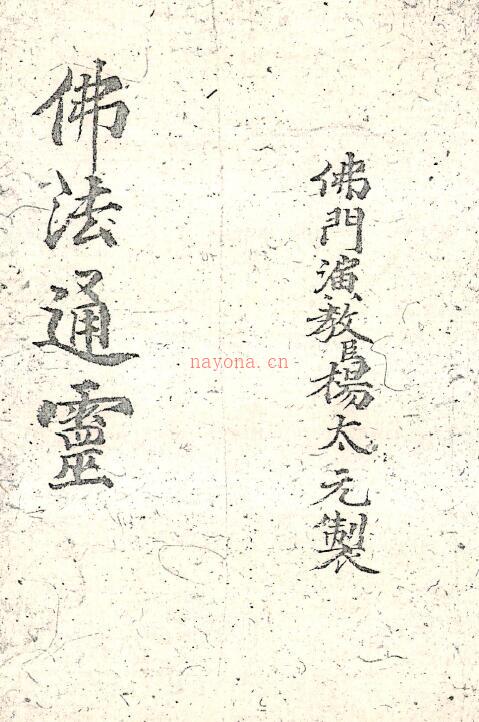 佛門演教楊太元製
佛法通靈
nayona.cn